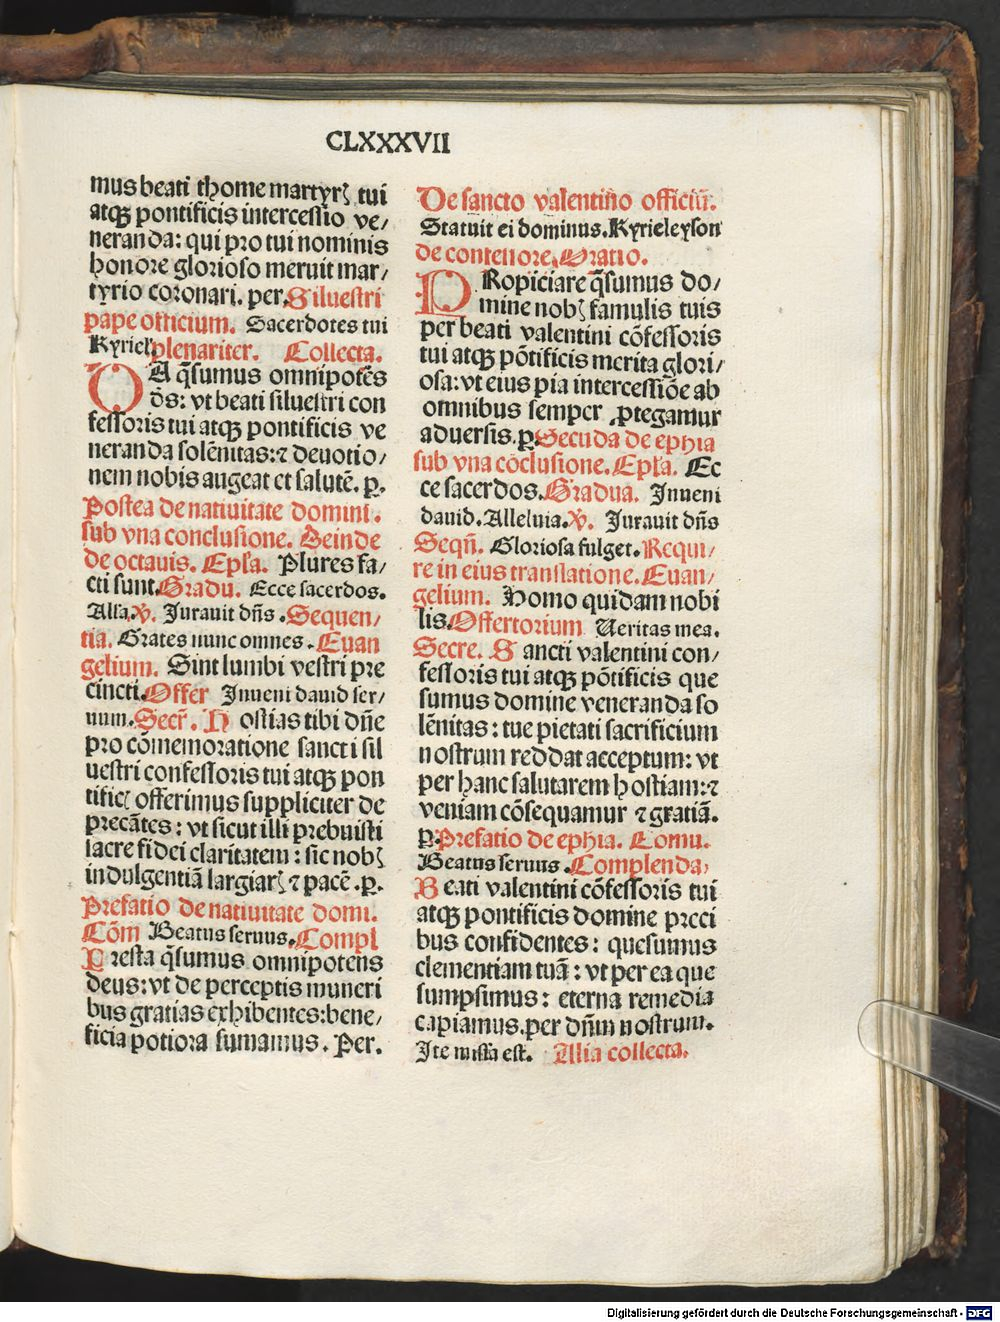 CLXXXVII
mus beati thome martyrꝫ tui
atqꝫ pontificis intercessio ve/
neranda: qui pro tui nominis
honore glorioso meruit mar/
tyrio coronari. per. Siluestri
pape officium. Sacerdotes tui
Kyriel' plenariter. Collecta.
DA q̄sumus omnipotēs
d̄s: vt beati siluestri con
fessoris tui atqꝫ pontificis ve
neranda solēnitas: ⁊ deuotio/
nem nobis augeat et salutē. p.
Postea de natiuitate domini.
sub vna conclusione. Deinde
de octauis. Epl̄a. Plures fa/
cti sunt. Gradu. Ecce sacerdos.
Alla. V. Jurauit dn̄s. Sequen/
tia. Grates nunc omnes. Euan
gelium. Sint lumbi vestri pre
cincti. Offer Inueni dauid ser/
uum. Secr̄. Hostias tibi dn̄e
pro cōmemoratione sancti sil
uestri confessoris tui atqꝫ pon
tificꝫ offerimus suppliciter de
precātes: vt sicut illi prebuisti
sacre fidei claritatem: sic nobꝫ
indulgentiā largiarꝫ ⁊ pacē. p.
Prefatio de natiuitate domi.
Cōm Beatus seruus. Compl
Presta q̄sumus omnipotens
deus: vt de perceptis muneri
bus gratias exhibentes: bene/
ficia potiora sumamus. Per.
De sancto valentino officiū.
Statuit ei dominus. Kyrieleyson
de confessore. Oratio.
PRopiciare q̄sumus do/
mine nobꝫ famulis tuis
per beati valentini cōfessoris
tui atqꝫ pōtificis merita glori/
osa: vt eius pia intercessiōe ab
omnibus semper ꝓtegamur
aduersis. p. Secūda de ephia
sub vna cōclusione. Epl̄a. Ec
ce sacerdos. Gradua. Inueni
dauid. Alleluia. V. Jurauit dn̄s
Seqn̄. Gloriosa fulget. Requi/
re in eius translatione. Euan/
gelium. Homo quidam nobi
lis. Offertorium Ueritas mea.
Secre. Sancti valentini con/
fessoris tui atqꝫ pōtificis que
sumus domine veneranda so
lēnitas: tue pietati sacrificium
nostrum reddat acceptum: vt
per hanc salutarem hostiam: ⁊
veniam cōsequamur ⁊ gratiā.
p. Prefatio de ephia. Comu.
Beatus seruus. Complenda.
Beati valentini cōfessoris tui
atqꝫ pontificis domine preci
bus confidentes: quesumus
clementiam tuā: vt per ea que
sumpsimus: eterna remedia
capiamus. per dn̄m nostrum.
Ite missa est. Alia collecta.
Digitalisierung gefördert durch die Deutsche Forschungsgemeinschaft - DFG